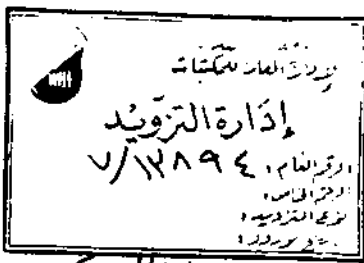 الإدارة العامة للمكتبات
إدارة التزويد
الرقم العام: ٧/١٣٨٩٤
الرقم الخاص:
نوع التزويد: